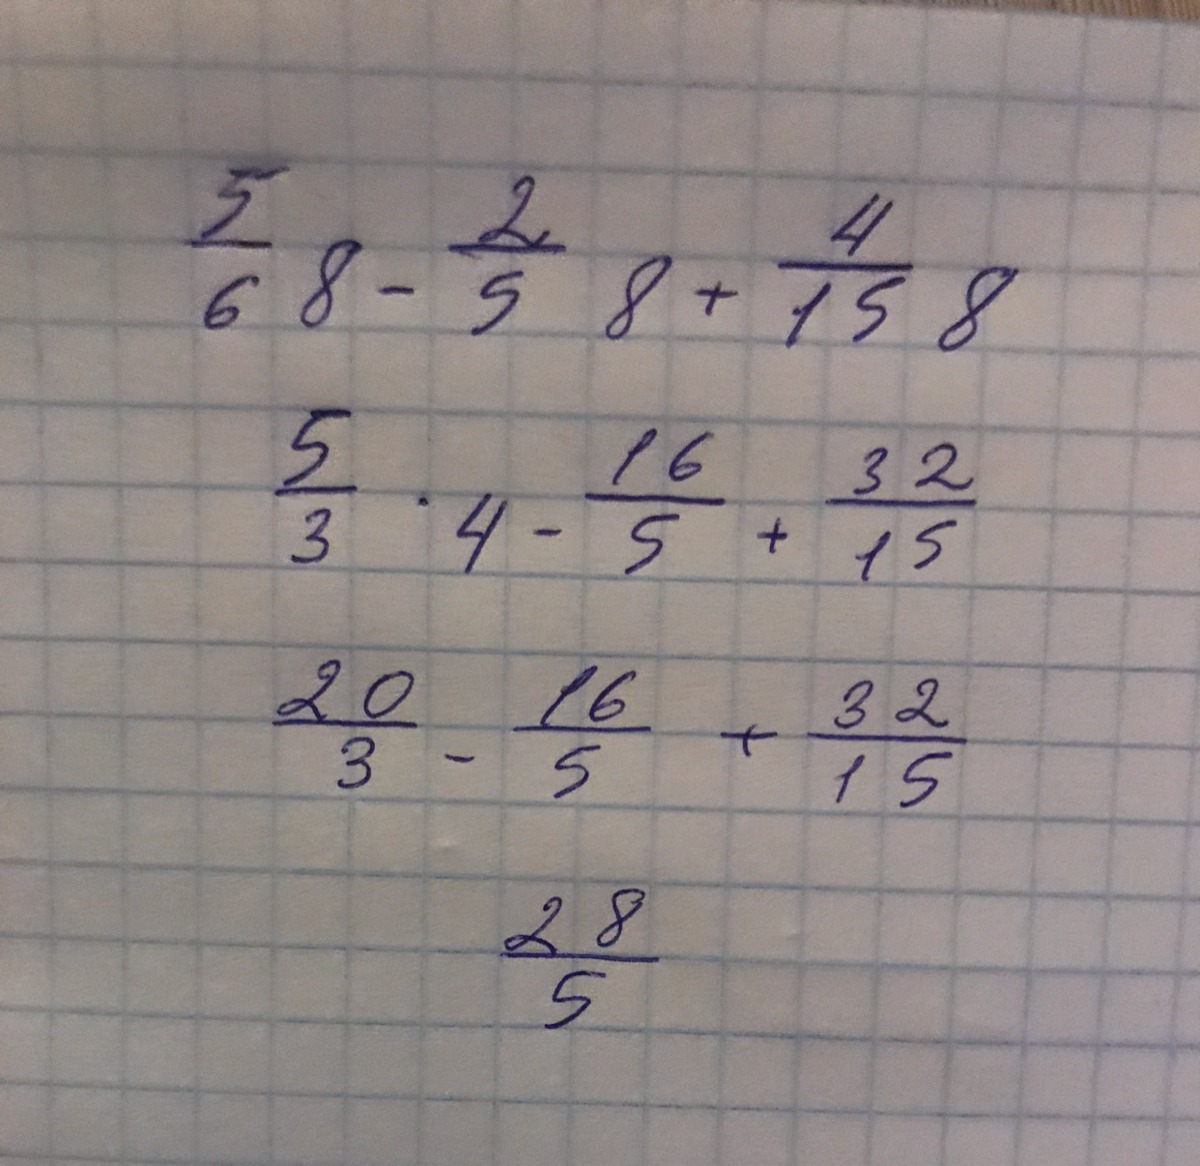 5/6 8 - 2/5 8 + 4/15 8
5/3 · 4 - 16/5 + 32/15
20/3 - 16/5 + 32/15
28/5